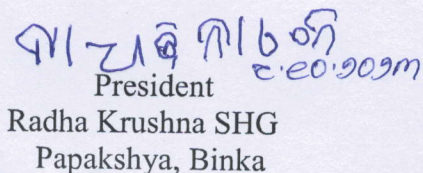 ୮.୧୦.୨୦୨୩
President
Radha Krushna SHG
Papakshya, Binka